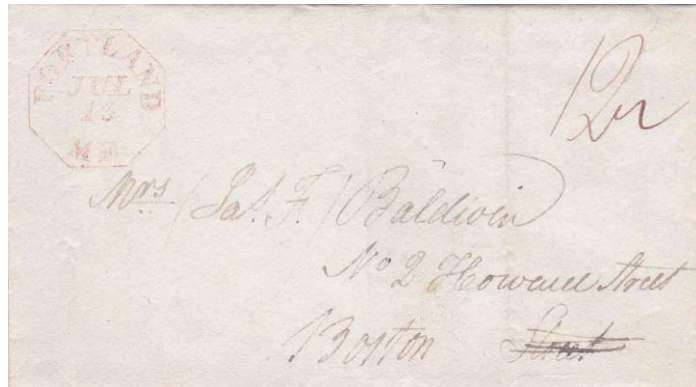 PORTLAND
JUL
15
ME.
12½
Mrs (Jas. F.) Baldwin
No 2 Street
Boston Street